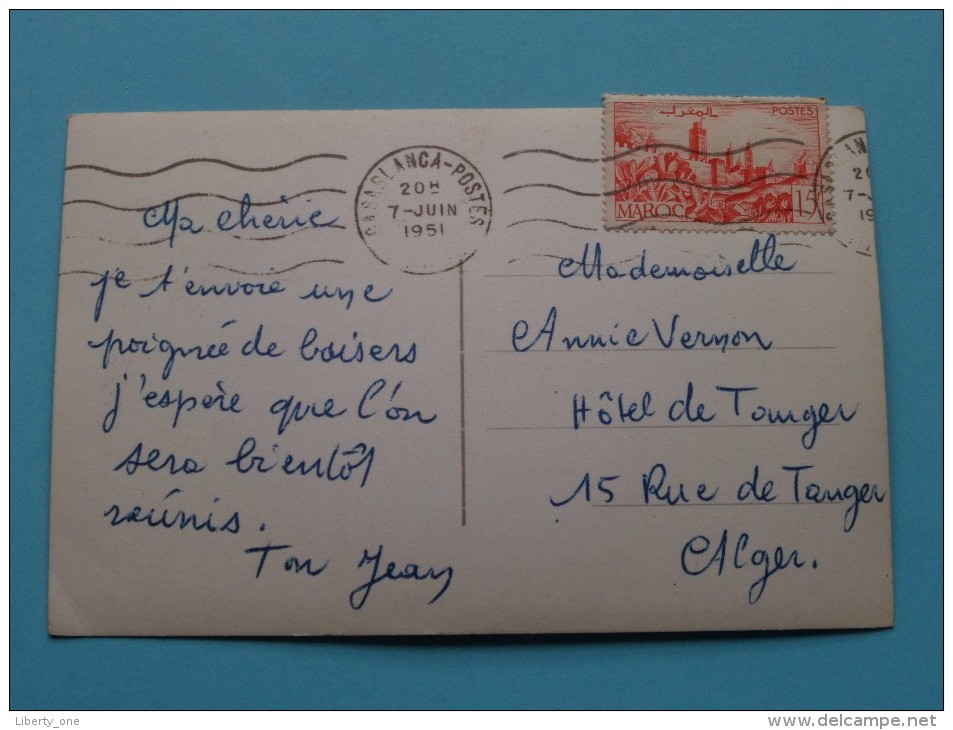 المغرب
POSTES
MAROC
15
CASABLANCA-POSTES
20H
7-JUIN
1951
Ma chérie
je t'envoie une
poignée de baisers
j'espère que l'on
sera bientôt
réunis.
Ton Jean
Mademoiselle
Annie Vernon
Hôtel de Tanger
15 Rue de Tanger
Alger.
Liberty_one
www.delcampe.net